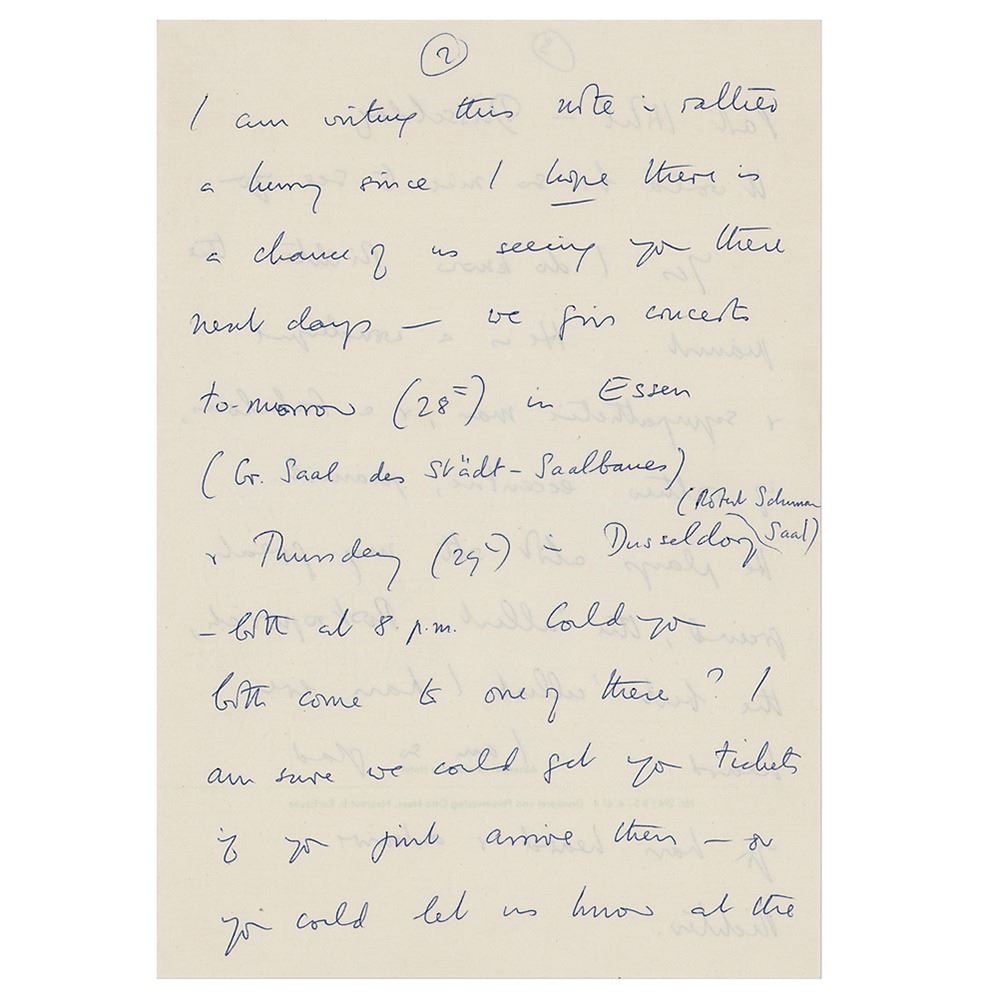 2
I am writing this note in rather
a hurry since I hope there is
a chance of us seeing you there
next days — we give concerts
to-morrow (28th) in Essen
(Gr. Saal des Städt-Saalbaues)
(Robert Schuman
& Thursday (29th) in Dusseldorf Saal)
— both at 8 p.m. Could you
both come to one of there? I
am sure we could get you tickets
if you just arrive there — or
you could let us know at the